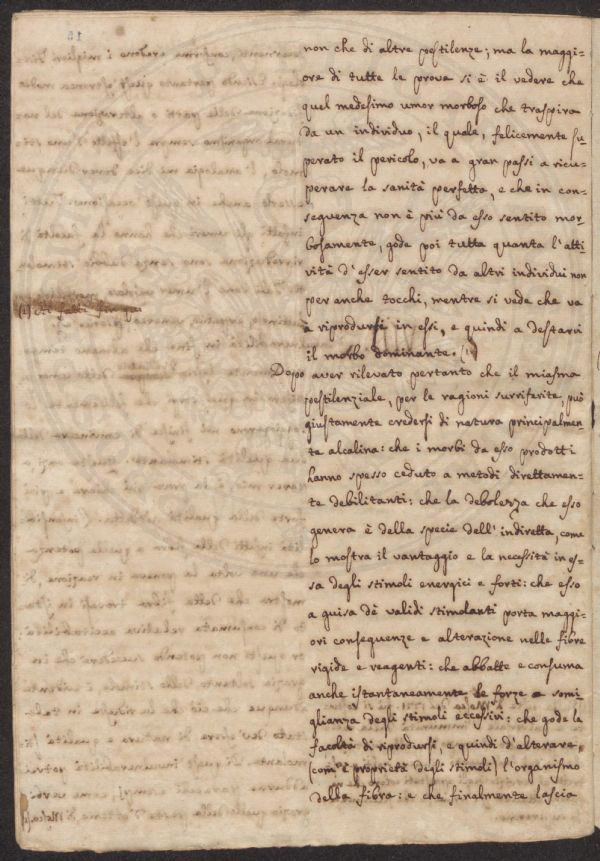 non che di altre pestilenze; ma la maggi=
ore di tutte le prova si è il vedere che
quel medesimo umor morboso che traspira
da un individuo, il quale, felicemente su=
perato il pericolo, va a gran passi a ricu=
perare la sanità perfetta, e che in con=
seguenza non è più da esso sentito mor=
bosamente, gode poi tutta quanta l'atti=
vità d'esser sentito da altri individui non
per anche tocchi, mentre si vede che va
a riprodursi in essi, e quindi a destarvi
il morbo dominante. (1)
Dopo aver rilevato pertanto che il miasma
pestilenziale, per le ragioni surriferite, può
giustamente credersi di natura principalmen=
te alcalina: che i morbi da esso prodotti
hanno spesso ceduto a metodi direttamen=
te debilitanti: che la debolezza che esso
genera è della specie dell'indiretta, come
lo mostra il vantaggio e la necessità in es=
sa degli stimoli energici e forti: che esso
a guisa de validi stimolanti porta maggi=
ori conseguenze e alterazione nelle fibre
rigide e reagenti: che abbatte e consuma
anche istantaneamente le forze a somi=
glianza degli stimoli eccessivi: che gode la
facoltà di riprodursi, e quindi d'alterare,
(com'è proprietà degli stimoli) l'organismo
della fibra: e che finalmente lascia